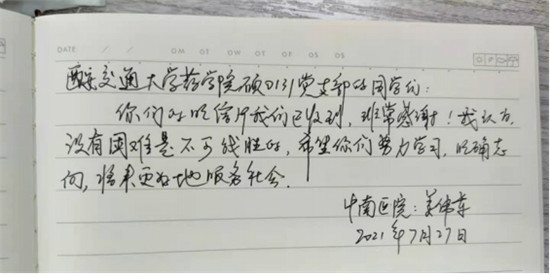 DATE / / OM OT OW OT OF OS OS
西安交通大学药学院硕0131党支部的同学们:
你们的明信片我们已收到,非常感谢!我认为
没有困难是不可战胜的,希望你们努力学习,明确志
向,将来更好地服务社会.
中南医院:姜伟
2021年7月27日